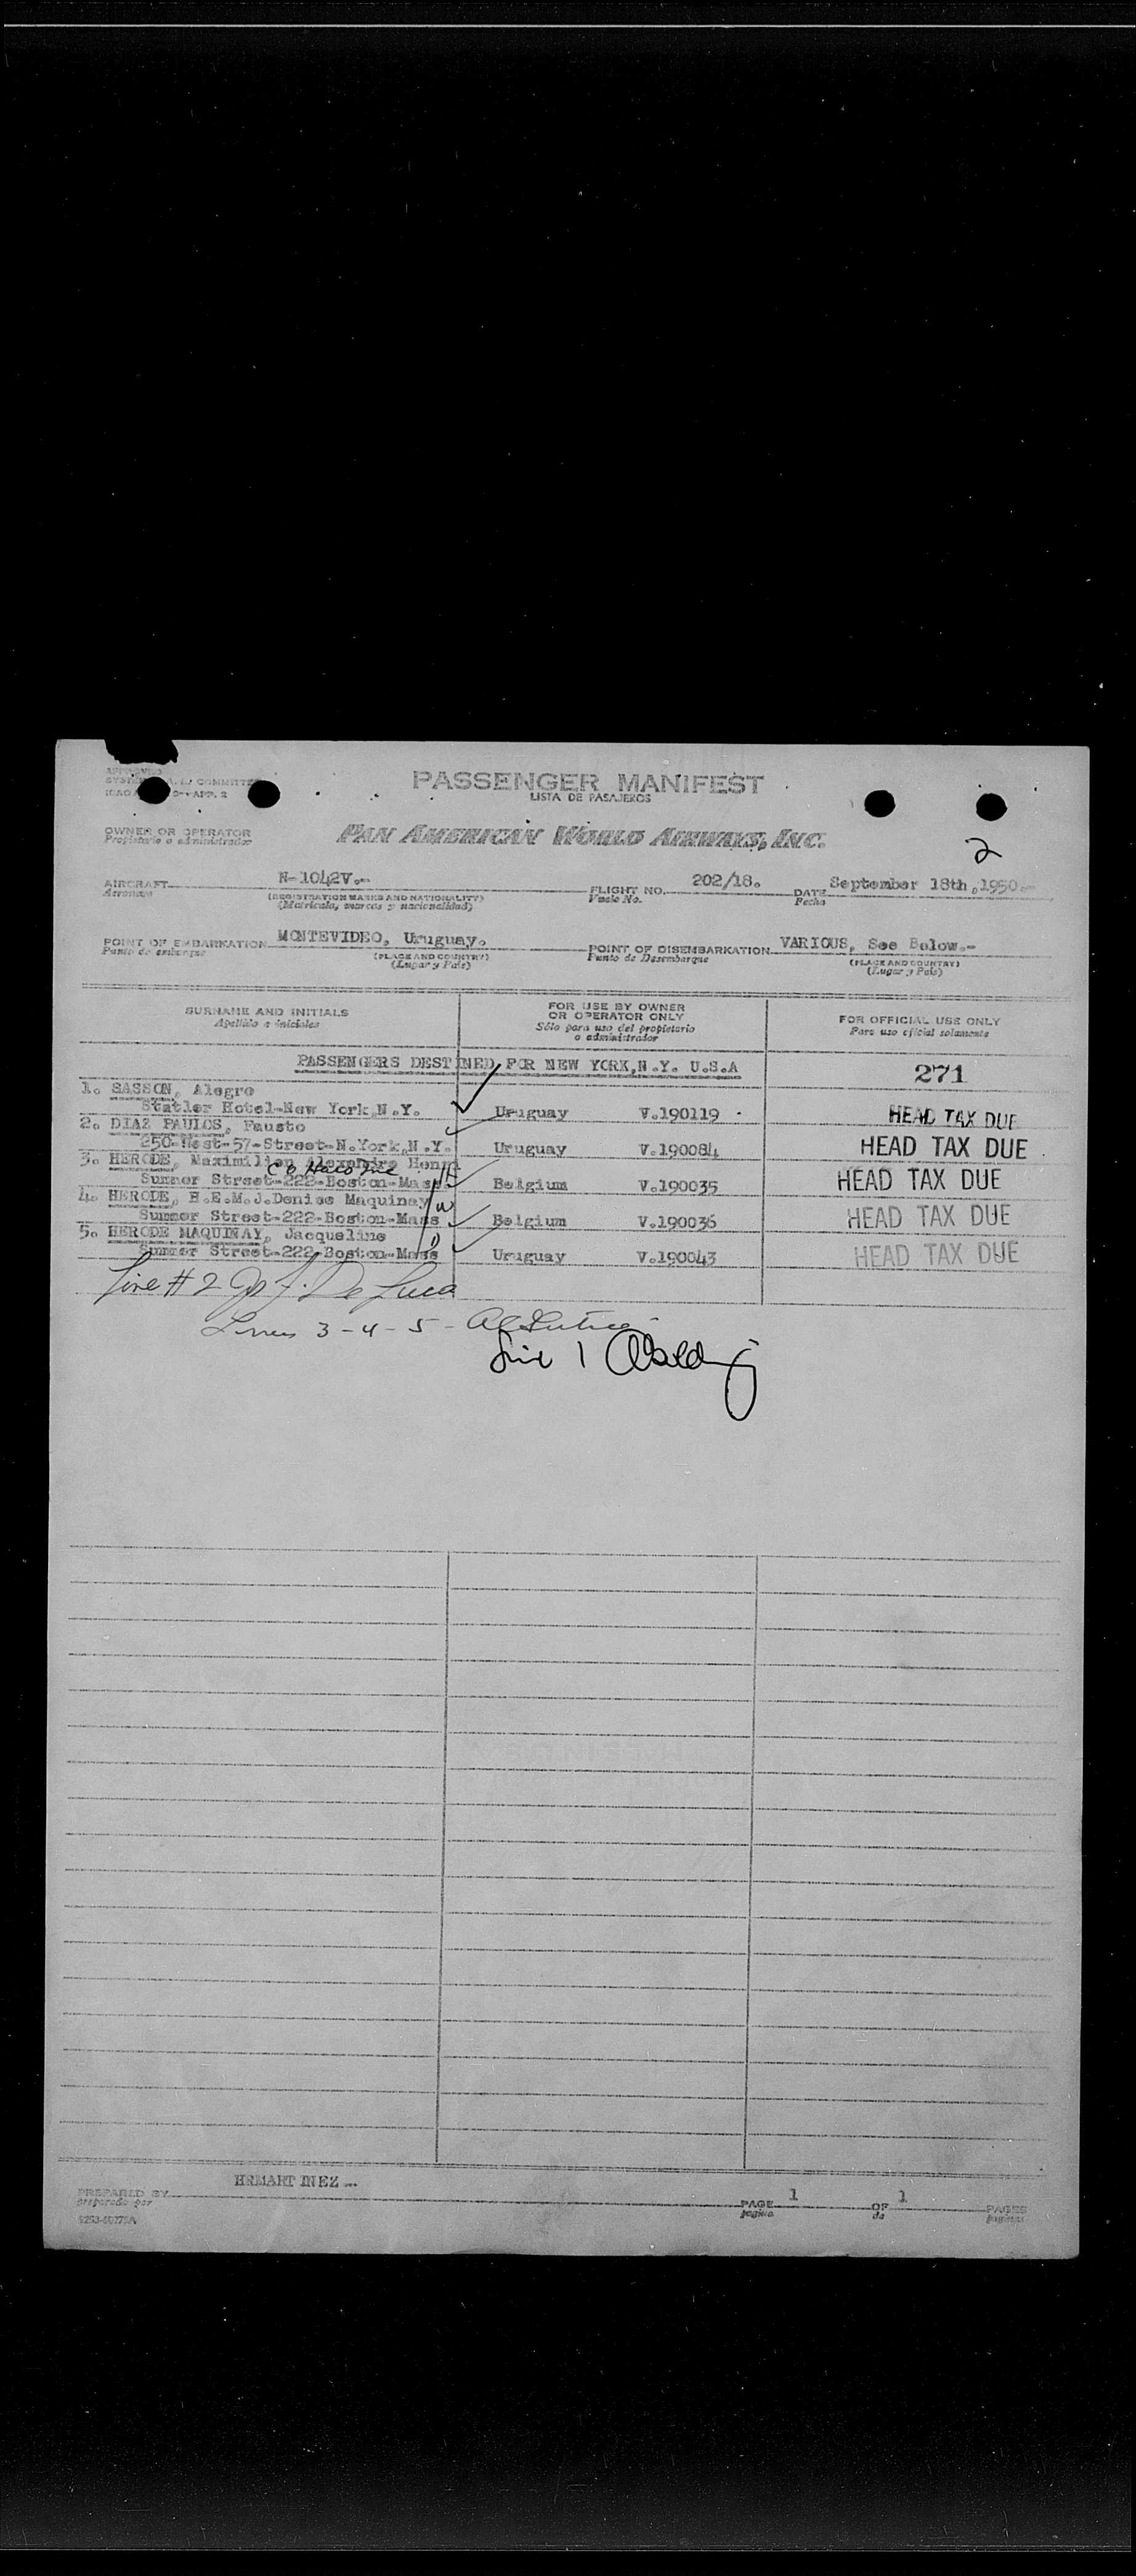 APPROVED
COMMITTEE
APP. 2
PASSENGER MANIFEST
LISTA DE PASAJEROS
OWNER OR OPERATOR
Propietario o administrador
PAN AMERICAN WORLD AIRWAYS, INC.
2
AIRCRAFT N-1042V.-
Aeronave
(REGISTRATION MARKS AND NATIONALITY)
(Matrícula, marcas y nacionalidad)
FLIGHT NO. 202/18.
Vuelo No.
DATE September 18th,1950.-
Fecha
POINT OF EMBARKATION MONTEVIDEO, Uruguay.
Punto de embarque
(PLACE AND COUNTRY)
(Lugar y País)
POINT OF DISEMBARKATION VARIOUS, See Below.-
Punto de Desembarque
(PLACE AND COUNTRY)
(Lugar y País)
SURNAME AND INITIALS
Apellido e iniciales
FOR USE BY OWNER
OR OPERATOR ONLY
Sólo para uso del propietario
o administrador
FOR OFFICIAL USE ONLY
Para uso oficial solamente
PASSENGERS DESTINED FOR NEW YORK,N.Y. U.S.A
271
1. SASSON, Alegre
Statler Hotel-New York,N.Y. Uruguay V.190119 HEAD TAX DUE
2. DIAZ PAULOS, Fausto
250-West-57-Street-N.York,N.Y. Uruguay V.190084 HEAD TAX DUE
3. HERODE, Maximilien Alexandre Henri
Summer Street-222-Boston-Mass Belgium V.190035 HEAD TAX DUE
4. HERODE, H.E.M.J.Denise Maquinay
Summer Street-222-Boston-Mass Belgium V.190036 HEAD TAX DUE
5. HERODE MAQUINAY, Jacqueline
Summer Street-222-Boston-Mass Uruguay V.190043 HEAD TAX DUE
Line # 2 De Luca
Lines 3-4-5-
Line 1
PREPARED BY HRMARTINEZ.-
preparado por
PAGE 1 OF 1 PAGES
página de páginas